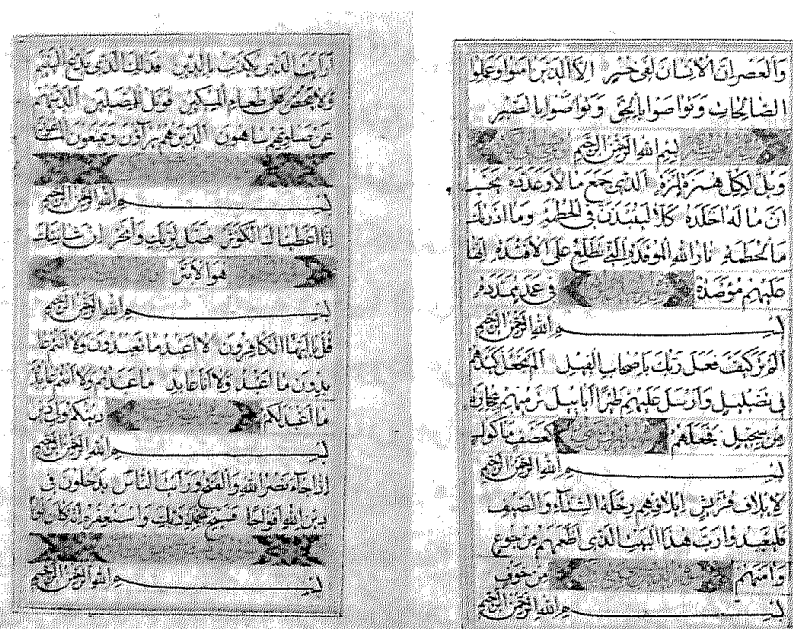 والعصر ان الانسان لفي خسر الا الذين امنوا وعملوا
الصالحات وتواصوا بالحق وتواصوا بالصبر
بسم الله الرحمن الرحيم
ويل لكل همزة لمزة الذي جمع مالا وعدده يحسب
ان ماله اخلده كلا لينبذن في الحطمة وما ادريك
ما الحطمة نار الله الموقدة التي تطلع على الافئدة انها
عليهم مؤصدة في عمد ممددة
بسم الله الرحمن الرحيم
الم تر كيف فعل ربك باصحاب الفيل الم يجعل كيدهم
في تضليل وارسل عليهم طيرا ابابيل ترميهم بحجارة
من سجيل فجعلهم كعصف ماكول
بسم الله الرحمن الرحيم
لايلاف قريش ايلافهم رحلة الشتاء والصيف
فليعبدوا رب هذا البيت الذي اطعمهم من جوع
وامنهم من خوف
بسم الله الرحمن الرحيم
ارايت الذي يكذب بالدين فذلك الذي يدع اليتيم
ولا يحض على طعام المسكين فويل للمصلين الذين هم
عن صلوتهم ساهون الذين هم يراؤن ويمنعون الماعون
بسم الله الرحمن الرحيم
انا اعطيناك الكوثر فصل لربك وانحر ان شانئك
هو الابتر
بسم الله الرحمن الرحيم
قل يا ايها الكافرون لا اعبد ما تعبدون ولا انتم عا
بدون ما اعبد ولا انا عابد ما عبدتم ولا انتم عابد
ما اعبد لكم دينكم ولي دين
بسم الله الرحمن الرحيم
اذا جاء نصر الله والفتح ورايت الناس يدخلون في
دين الله افواجا فسبح بحمد ربك واستغفره انه كان توابا
بسم الله الرحمن الرحيم